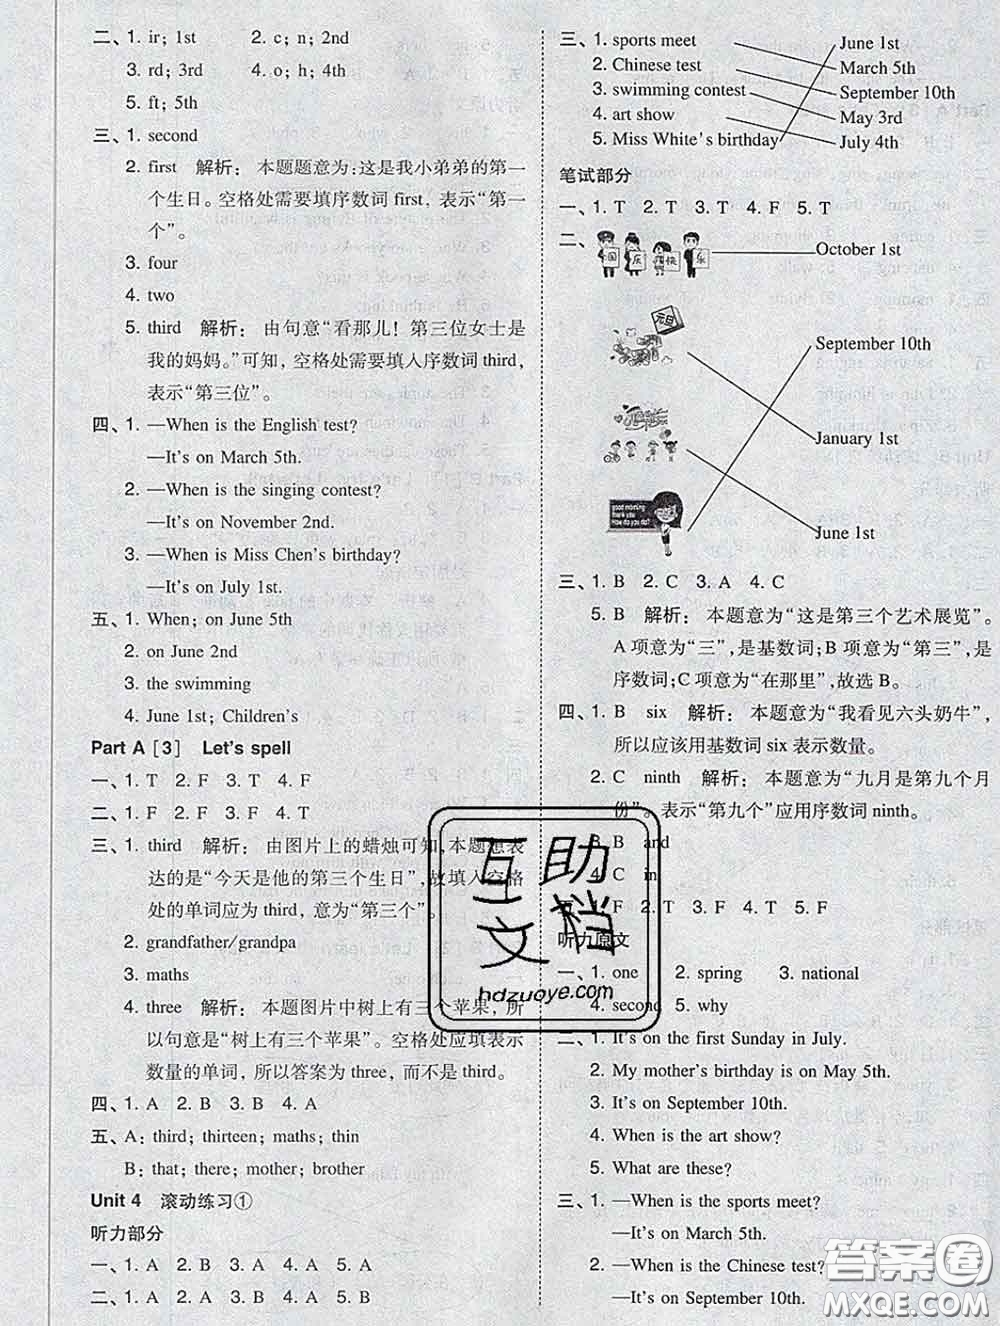 二、1. ir; 1st　2. c; n; 2nd
3. rd; 3rd　4. o; h; 4th
5. ft; 5th
三、1. second
2. first　解析：本题题意为：这是我小弟弟的第
一个生日。空格处需要填序数词 first，表示“第一
个”。
3. four
4. two
5. third　解析：由句意“看那儿！第三位女士是
我的妈妈。”可知，空格处需要填入序数词 third，
表示“第三位”。
四、1. —When is the English test?
—It's on March 5th.
2. —When is the singing contest?
—It's on November 2nd.
3. —When is Miss Chen's birthday?
—It's on July 1st.
五、1. When; on June 5th
2. on June 2nd
3. the swimming
4. June 1st; Children's
Part A [3]　Let's spell
一、1. T　2. F　3. T　4. F
二、1. F　2. F　3. T　4. F　5. T
三、1. third　解析：由图片上的蜡烛可知，本题想表
达的是“今天是他的第三个生日”，故填入空格
处的单词应为 third，意为“第三个”。
2. grandfather/grandpa
3. maths
4. three　解析：本题图片中树上有三个苹果，所
以句意是“树上有三个苹果”。空格处应填表示
数量的单词，所以答案为 three，而不是 third。
四、1. A　2. B　3. B　4. A
五、A: third; thirteen; maths; thin
B: that; there; mother; brother
Unit 4　滚动练习①
听力部分
一、1. A　2. B　3. A　4. A　5. A
二、1. A　2. A　3. B　4. A　5. B
三、1. sports meet　June 1st
2. Chinese test　March 5th
3. swimming contest　September 10th
4. art show　May 3rd
5. Miss White's birthday　July 4th
笔试部分
一、1. T　2. T　3. T　4. F　5. T
二、
国庆快乐
October 1st
元旦
September 10th
January 1st
good morning
thank you
How do you do?
June 1st
三、1. B　2. C　3. A　4. C
5. B　解析：本题意为“这是第三个艺术展览”。
A 项意为“三”，是基数词；B 项意为“第三”，是
序数词；C 项意为“在那里”，故选 B。
四、1. B　six　解析：本题意为“我看见六头奶牛”，
所以应该用基数词 six 表示数量。
2. C　ninth　解析：本题意为“九月是第九个月
份”。表示“第九个”应用序数词 ninth。
3. B　and
4. C　in
五、1. F　2. T　3. T　4. F　5. F
听力原文
一、1. one　2. spring　3. national
4. second　5. why
二、1. It's on the first Sunday in July.
2. My mother's birthday is on May 5th.
3. It's on September 10th.
4. When is the art show?
5. What are these?
三、1. —When is the sports meet?
—It's on March 5th.
2. —When is the Chinese test?
—It's on September 10th.
互助
文档
hdzuoye.com
答案圈
MXQE.COM